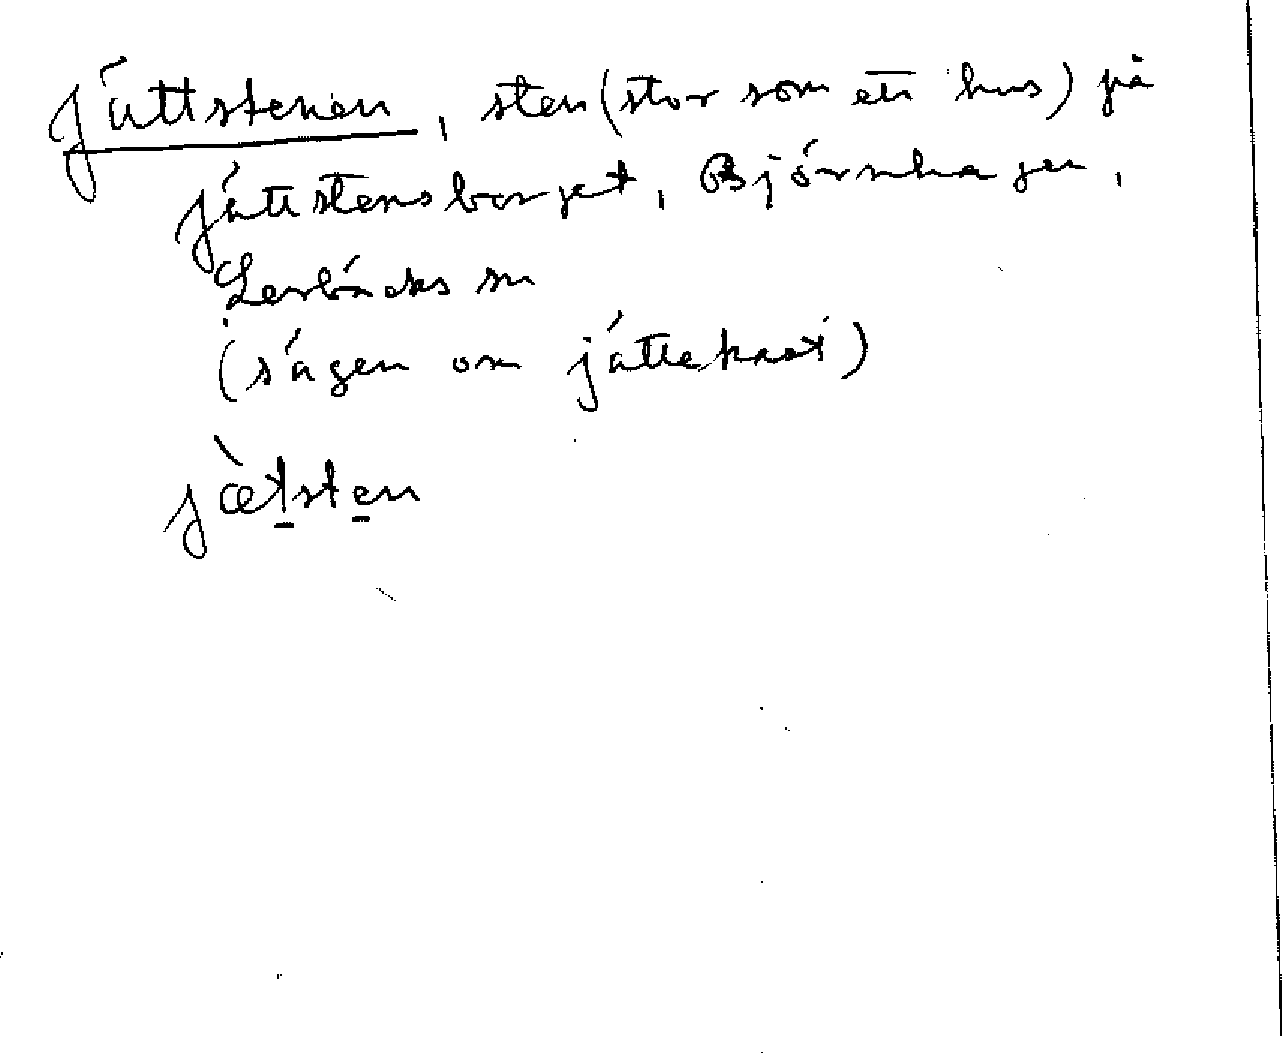 Jättstenen, sten (stor som ett hus) på
Jättstensberget, Björnhagen,
Lerbäcks sn
(sägen om jättekast)
jæ̀tsten